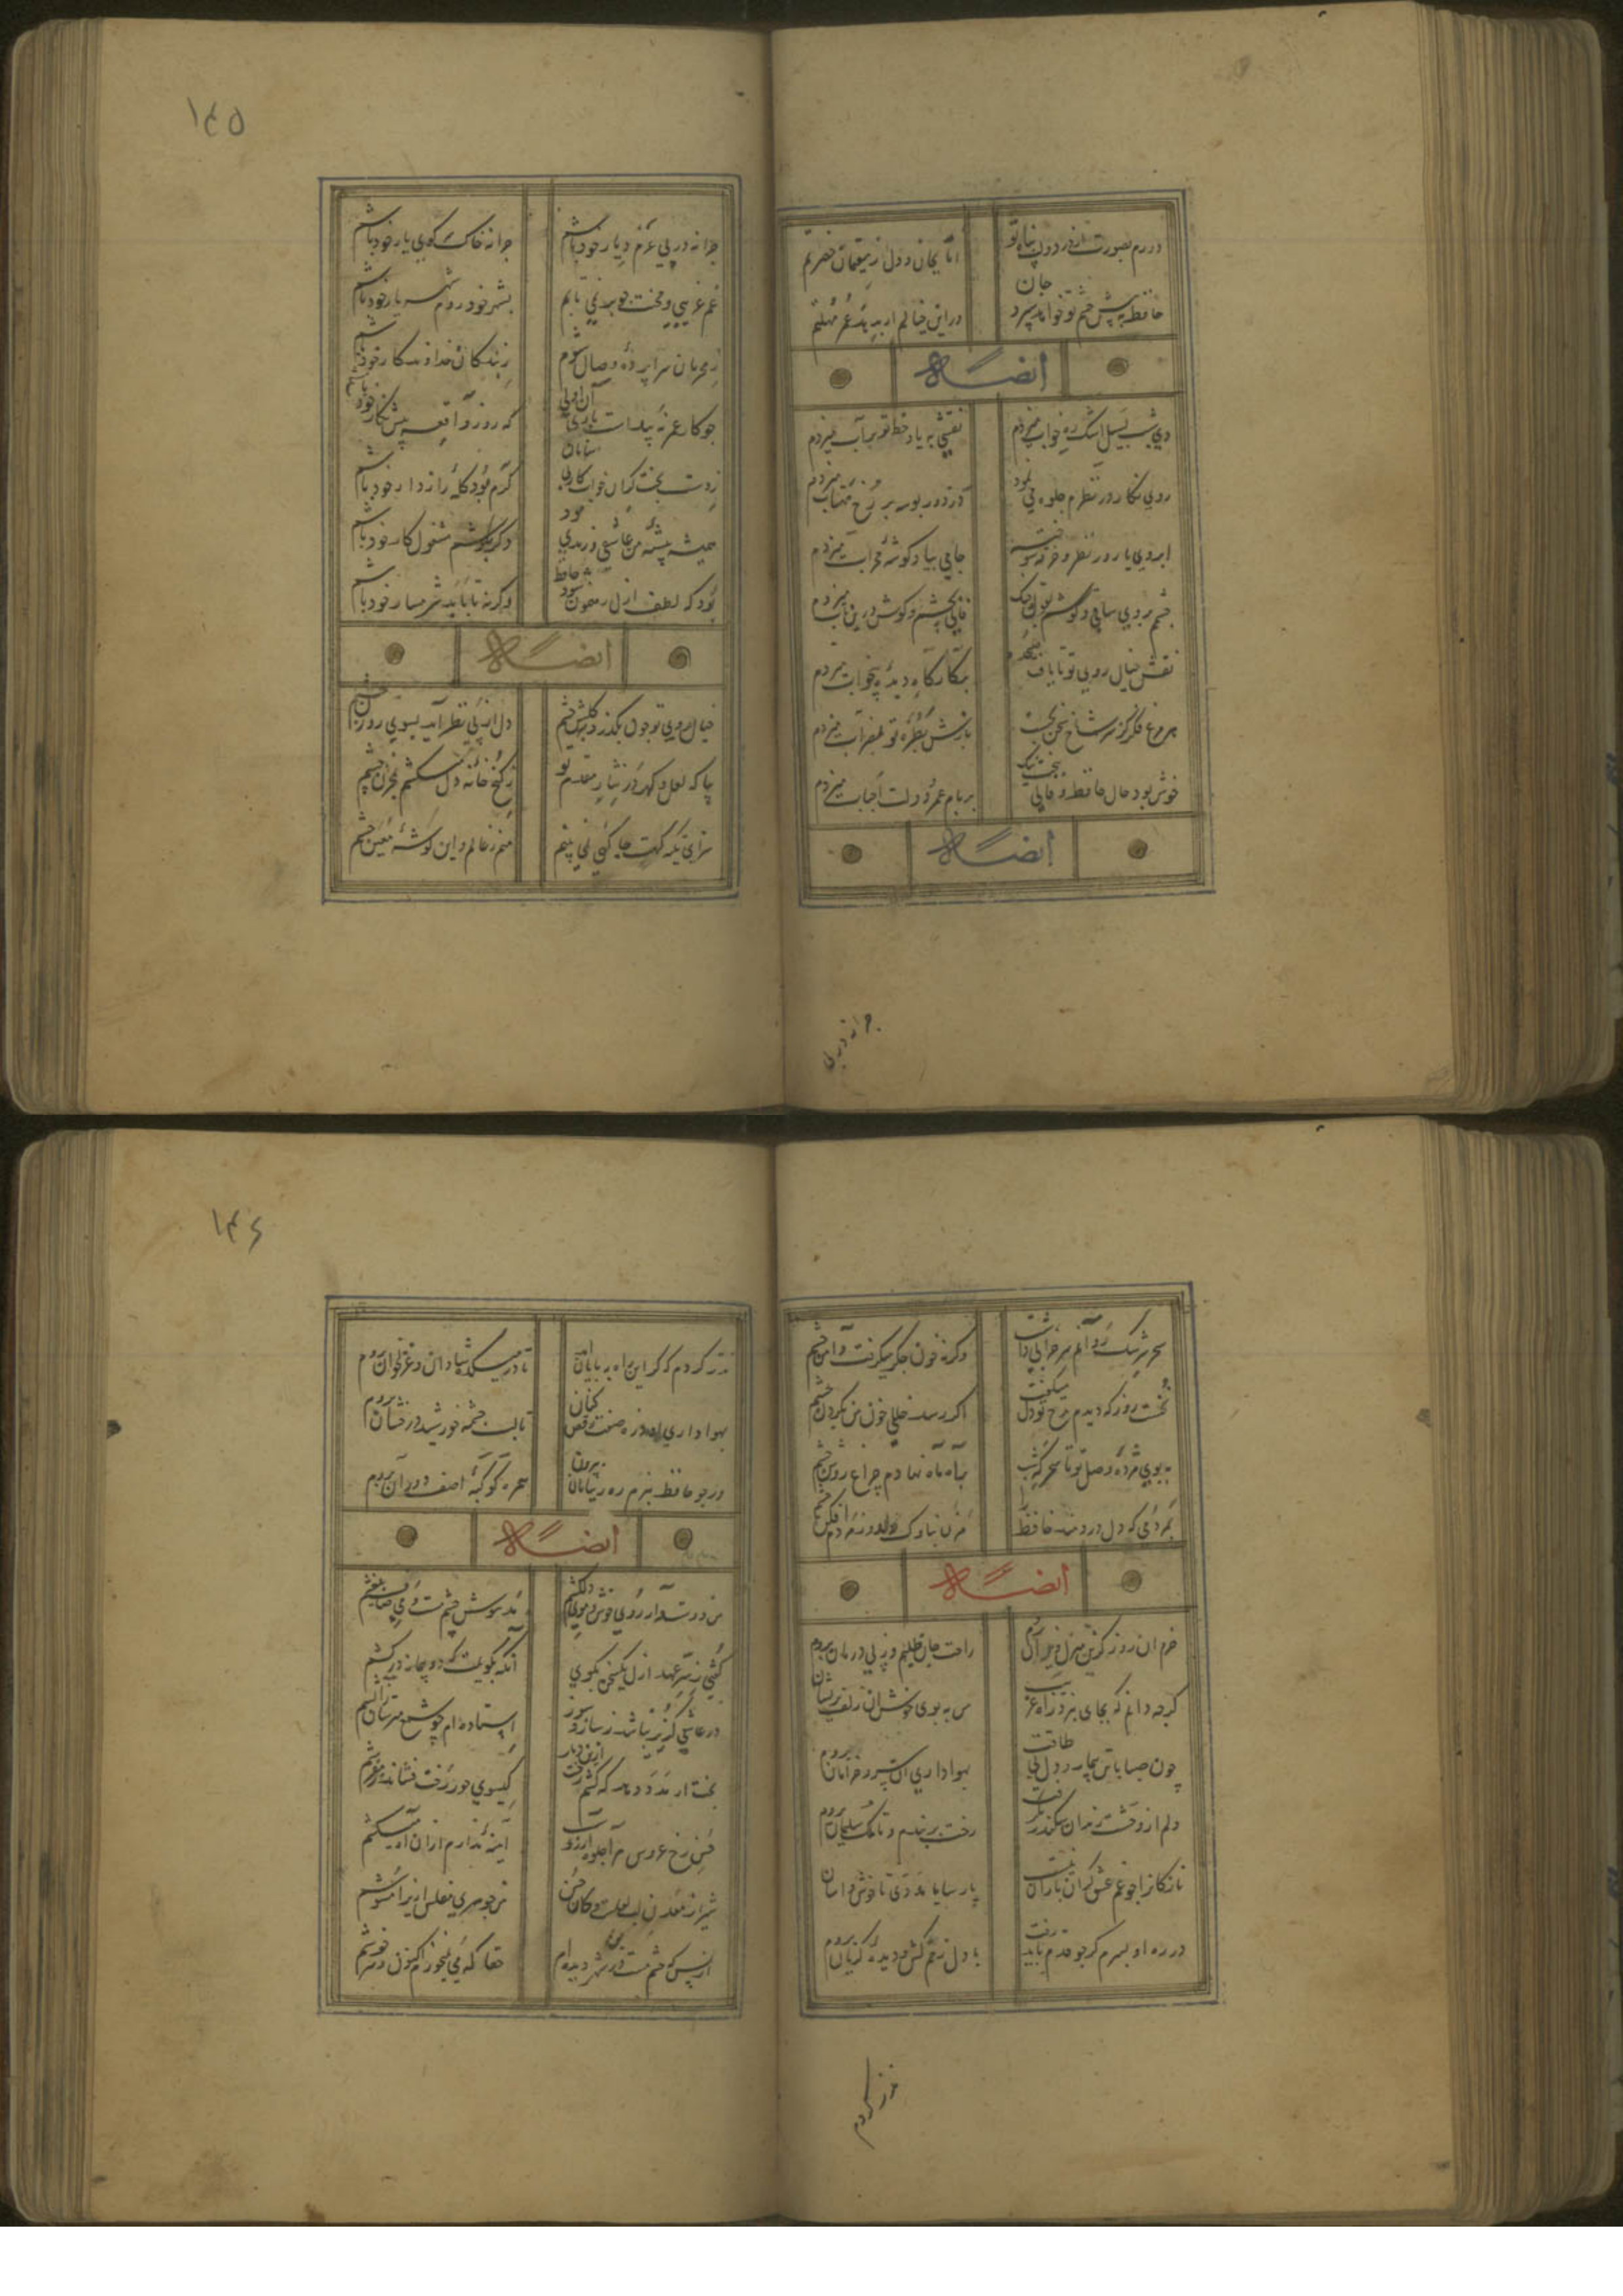 دورم بصورت از در دولت پناه تو
اما بجان و دل ز مقیمان حضرتم
حافظ به پیش چشم تو خواهد سپرد جان
در این خیالم ار بدهد عمر مهلتم
ایضاله
دی شب بسیل اشک ره خواب میزدم
نقشی به یاد خط تو بر آب میزدم
روی نکار در نظرم جلوه می نمود
وز دور بوسه بر رخ مهتاب میزدم
ابروی یار در نظر و خرقه سوخته
جامی بیاد کوشه محراب میزدم
چشمم بروی ساقی و کوشم بقول چنک
فالی بچشم و کوش درین باب میزدم
نقش خیال روی تو تا بامداد
بر کارکاه دیده بیخواب میزدم
هر مرغ فکر کز سر شاخ سخن بجست
بازش بطره تو بمضراب میزدم
خوش بود حال حافظ و فالی ببخت نیک
بر نام عمر و دولت احباب میزدم
ایضاله
چرا نه در پی
۱۴۵
چرا نه در پی عزم دیار خود باشم
چرا نه خاک کوی یار خود باشم
غم غریبی و محنت چو بر نمی تابم
بشهر خود روم و شهریار خود باشم
ز محرمان سراپرده وصال شوم
ز بندکان خداوندکار خود باشم
چو کار عمر نه پیداست باری آن اولی
که روز واقعه پیش نکار خود باشم
ز دست بخت کران خواب و کار بی سامان
کرم بود کله رازدار خود باشم
همیشه پیشه من عاشقی و رندی بود
دکر بکوشم و مشغول کار خود باشم
بود که لطف ازل رهنمون شود حافظ
وکرنه تا بابد شرمسار خود باشم
ایضاله
خیال روی تو چون بکذرد بکلشن چشم
دل از پی نظر آید بسوی روزن چشم
بیا که لعل و کهر در نثار مقدم تو
ز کنج خانه دل میکشم بمخزن چشم
سزای تکیه کهت جایکهی نمی بینم
منم ز عالم و این کوشه معین چشم
سحر سرشک روانم سر خرابی داشت
وکرنه خون جکر میکرفت دامن چشم
نخست روز که دیدم رخ تو دل میکفت
اکر رسد خللی خون من بکردن چشم
به بوی مژده وصل تو تا سحر که شب
براه باد نهادم چراغ روشن چشم
بمردمی که دل دردمند حافظ را
مزن بناوک دلدوز مردم افکن چشم
ایضاله
خرم ان روز کزین منزل ویران بروم
راحت جان طلبم وز پی درمان بروم
کرچه دانم که بجای نبرد راه غریب
من به بوی خوش ان زلف پریشان
چون صبا با تن بیمار و دل بی طاقت
بهواداری ان سرو خرامان بروم
دلم از وحشت زندان سکندر بکرفت
رخت بربندم و تا ملک سلیمان بروم
نازکانرا چو غم عشق کران باران نیست
پارسایان مددی تا خوش و اسان
در ره او بسرم کر چو قدم باید رفت
با دل زخم کش و دیده کریان بروم
نذر کردم
۱۴۶
نذر کردم که کر این راه به پایان آید
تا در میکده شادان و غزلخوان بروم
بهواداری او ذره صفت رقص کنان
تا لب چشمه خورشید درخشان بروم
ور چو حافظ نبرم ره ز بیابان بیرون
همره کوکبه اصف دوران بروم
ایضاله
من دوستدار روی خوش و موی دلکشم
مدهوش چشم مست و می صاف بیغشم
کفتی ز سر عهد ازل یک سخن بکوی
آنکه بکویمت که دو پیمانه درکشم
در عاشقی کزیر نباشد ز ساز و سوز
استاده ام چو شمع مترسان ز اتشم
بخت ار مدد دهد که کشم رخت ازین دیار
کیسوی حور کرد فشاند ز مفرشم
حسن رخ عروس مرا جلوه ارزوست
آینه ندارم ازان آه میکشم
شیراز معدن لب لعلست و کان حسن
من جوهری مفلس ازیرا مشوشم
از بس که چشم مست درین شهر دیده ام
حقا که می نمیخورم اکنون و سرخوشم